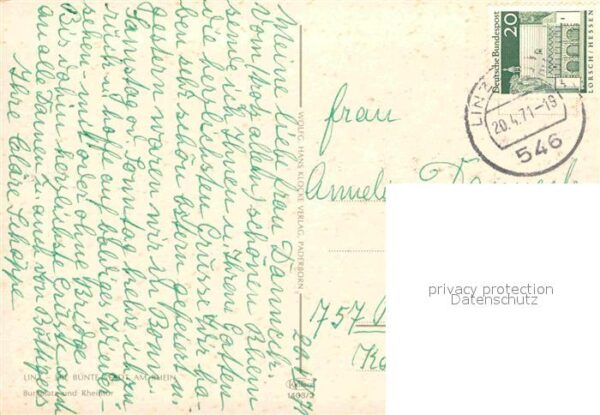 20.4.71
Meine liebe Frau Danneck!
Vom (trotz allem) schönen Rhein
sende ich Ihnen u. Ihrem Gatten
die herzlichsten Grüsse. Wir ha-
ben sehr schön Ostern gefeiert.
Gestern waren wir in Bonn.
Samstag od. Sonntag kehre ich zu-
rück u. hoffe auf baldiges Wieder-
sehen – mit oder ohne Bridge.
Bis dahin herzlichst Grüsse auch
an alle Damen u. auch von Böttgers
Ihre Cläre Schöppe
WOLFG. HANS KLOCKE VERLAG, PADERBORN
LINZ - DIE BUNTE STADT AM RHEIN
Burgplatz und Rheintor
1408/2
Deutsche Bundespost
20
LORSCH/HESSEN
LINZ
20.4.71-19
546
Frau
Danneck
757
privacy protection
Datenschutz